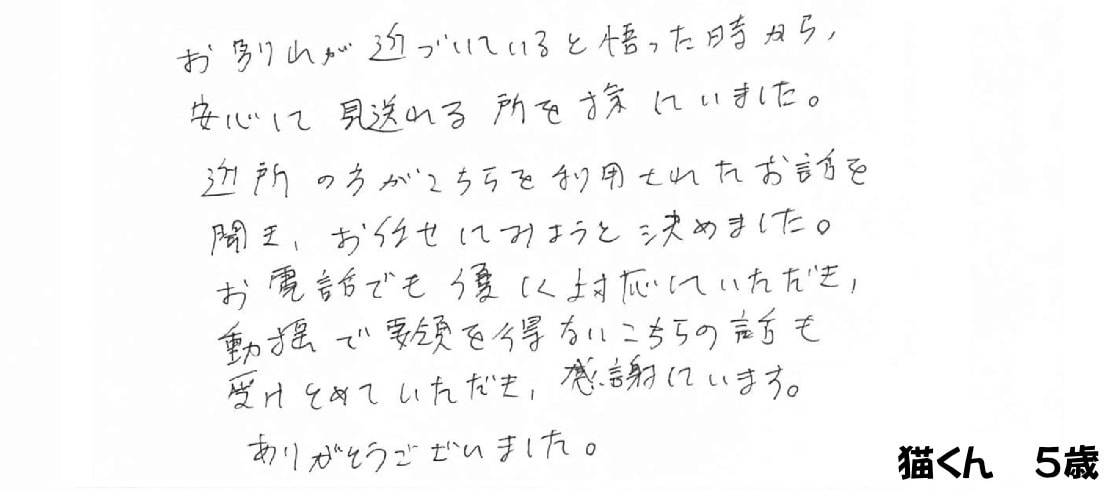 お別れが近づいていると悟った時から,
安心して見送れる所を探していました。
近所の方がこちらを利用されたお話を
聞き, お任せしてみようと決めました。
お電話でも優しく対応していただき,
動揺で要領を得ないこちらの話も
受けとめていただき, 感謝しています。
ありがとうございました。
猫くん　５歳